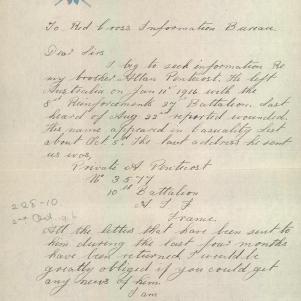 To Red Cross Information Bureau
Dear Sirs
I beg to seek information Re
my brother Allan Pentecost. He left
Australia on Jan 11th 1916 with the
8th Reinforcements 27th Battalion. Last
heard of Aug 22nd reported wounded.
His name appeared in Casuality List
about Oct 5th. The last address he sent
us was,
Private A Pentecost
No 3577
10th Battalion
A I F
France.
225-10
All the letters that have been sent to
him during the last four months
have been returned, I would be
greatly obliged if you could get
any news of him.
I am